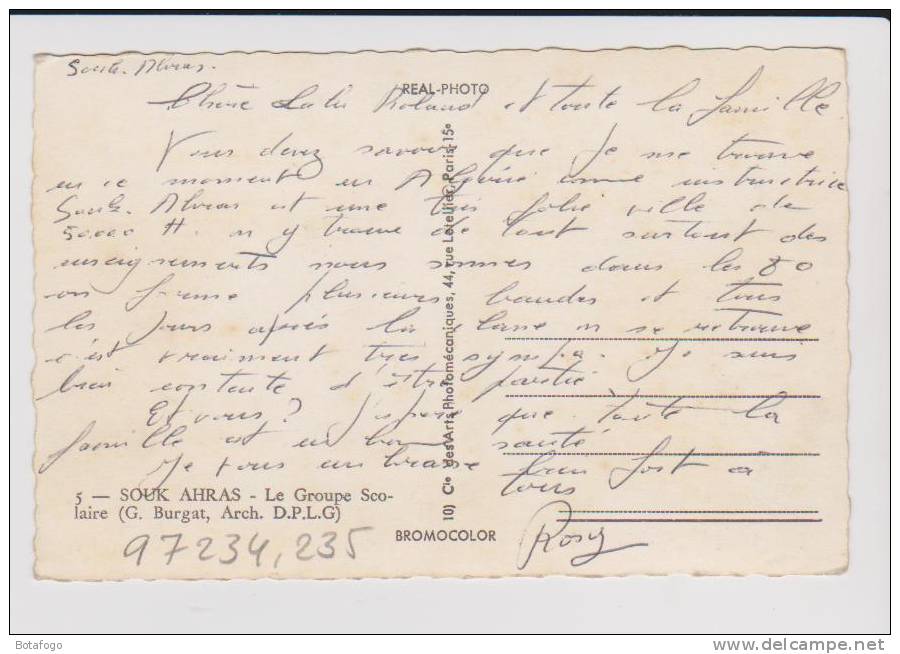 Souk-Ahras.
REAL-PHOTO
Chère Lulu Roland et toute la famille
Vous devez savoir que je me trouve
en ce moment en Algérie comme institutrice
Souk-Ahras est une très jolie ville de
50000 H. on y trouve de tout surtout des
enseignements nous sommes dans les 80
on forme plusieurs bandes et tous
les jours après la classe on se retrouve
c'est vraiment très sympa. Je suis
bien contente d'être partie
Et vous? J'espère que toute la
famille est en bonne santé
Je vous embrasse bien fort à
tous
Rosy
5 — SOUK AHRAS - Le Groupe Sco-
laire (G. Burgat, Arch. D.P.L.G)
97234,235
BROMOCOLOR
10) Cie des Arts Photomécaniques, 44, rue Letellier, Paris-15e
Botafogo
www.delcampe.net